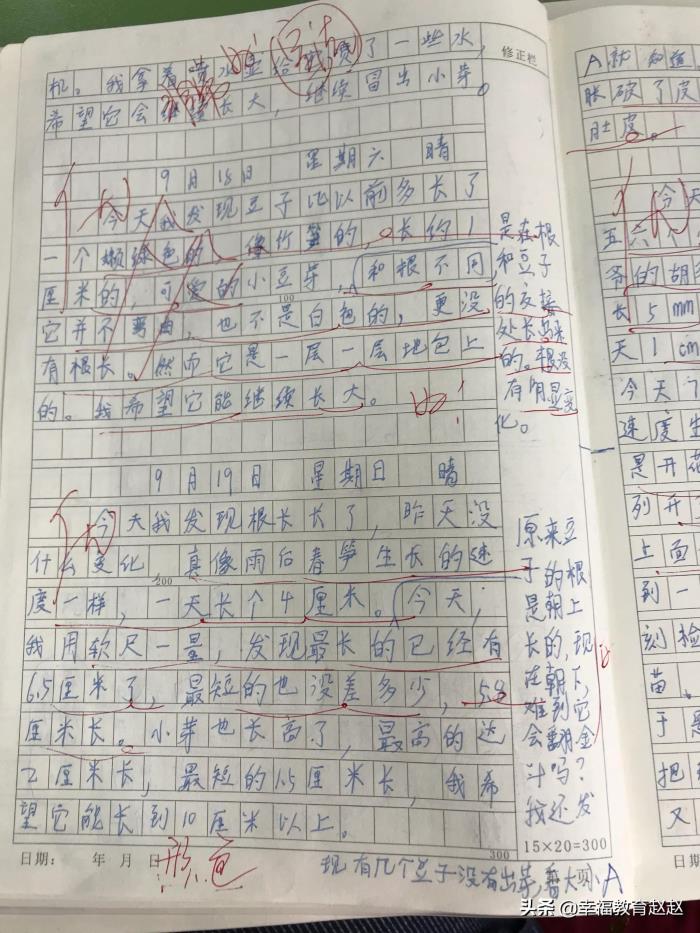 机。我拿着 水壶给 了一些水,
希望它会 长大，继续冒出小芽。
修正栏
9月18日 星期六 晴
今天我发现豆子比以前多长了
一个嫩绿色的，像竹笋的，长约1
厘米的，可爱的小豆芽，和根不同，
100
它并不弯曲，也不是白色的，更没
有根长。然而它是一层一层地包上
的。我希望它能继续长大。
是在根
和豆子
的交接
处长出来
的。根没
有明显变
化。
9月19日 星期日 晴
今天我发现根长长了，昨天没
什么变化，真像雨后春笋生长的速
200
度一样，一天长个4厘米。今天，
我用软尺一量，发现最长的已经有
6.5厘米了，最短的也没差多少，5.8
厘米长。小芽也长高了，最高的达
2厘米长，最短的1.5厘米长，我希
望它能长到10厘米以上。
原来豆
子的根
是朝上
长的，现
在朝下，
难到它
会翻金
斗吗？
我还发
现有几个豆子没有出芽，看大 A
15×20=300
300
日期： 年 月 日
A就知道
胀破了皮
肚皮。
今天
五六个
爷的胡
长5mm
天1cm
今天个
速度生
是开花
列开
上面
到一
刻检
苗。
于是
把
又
日期
头条 @幸福教育赵赵